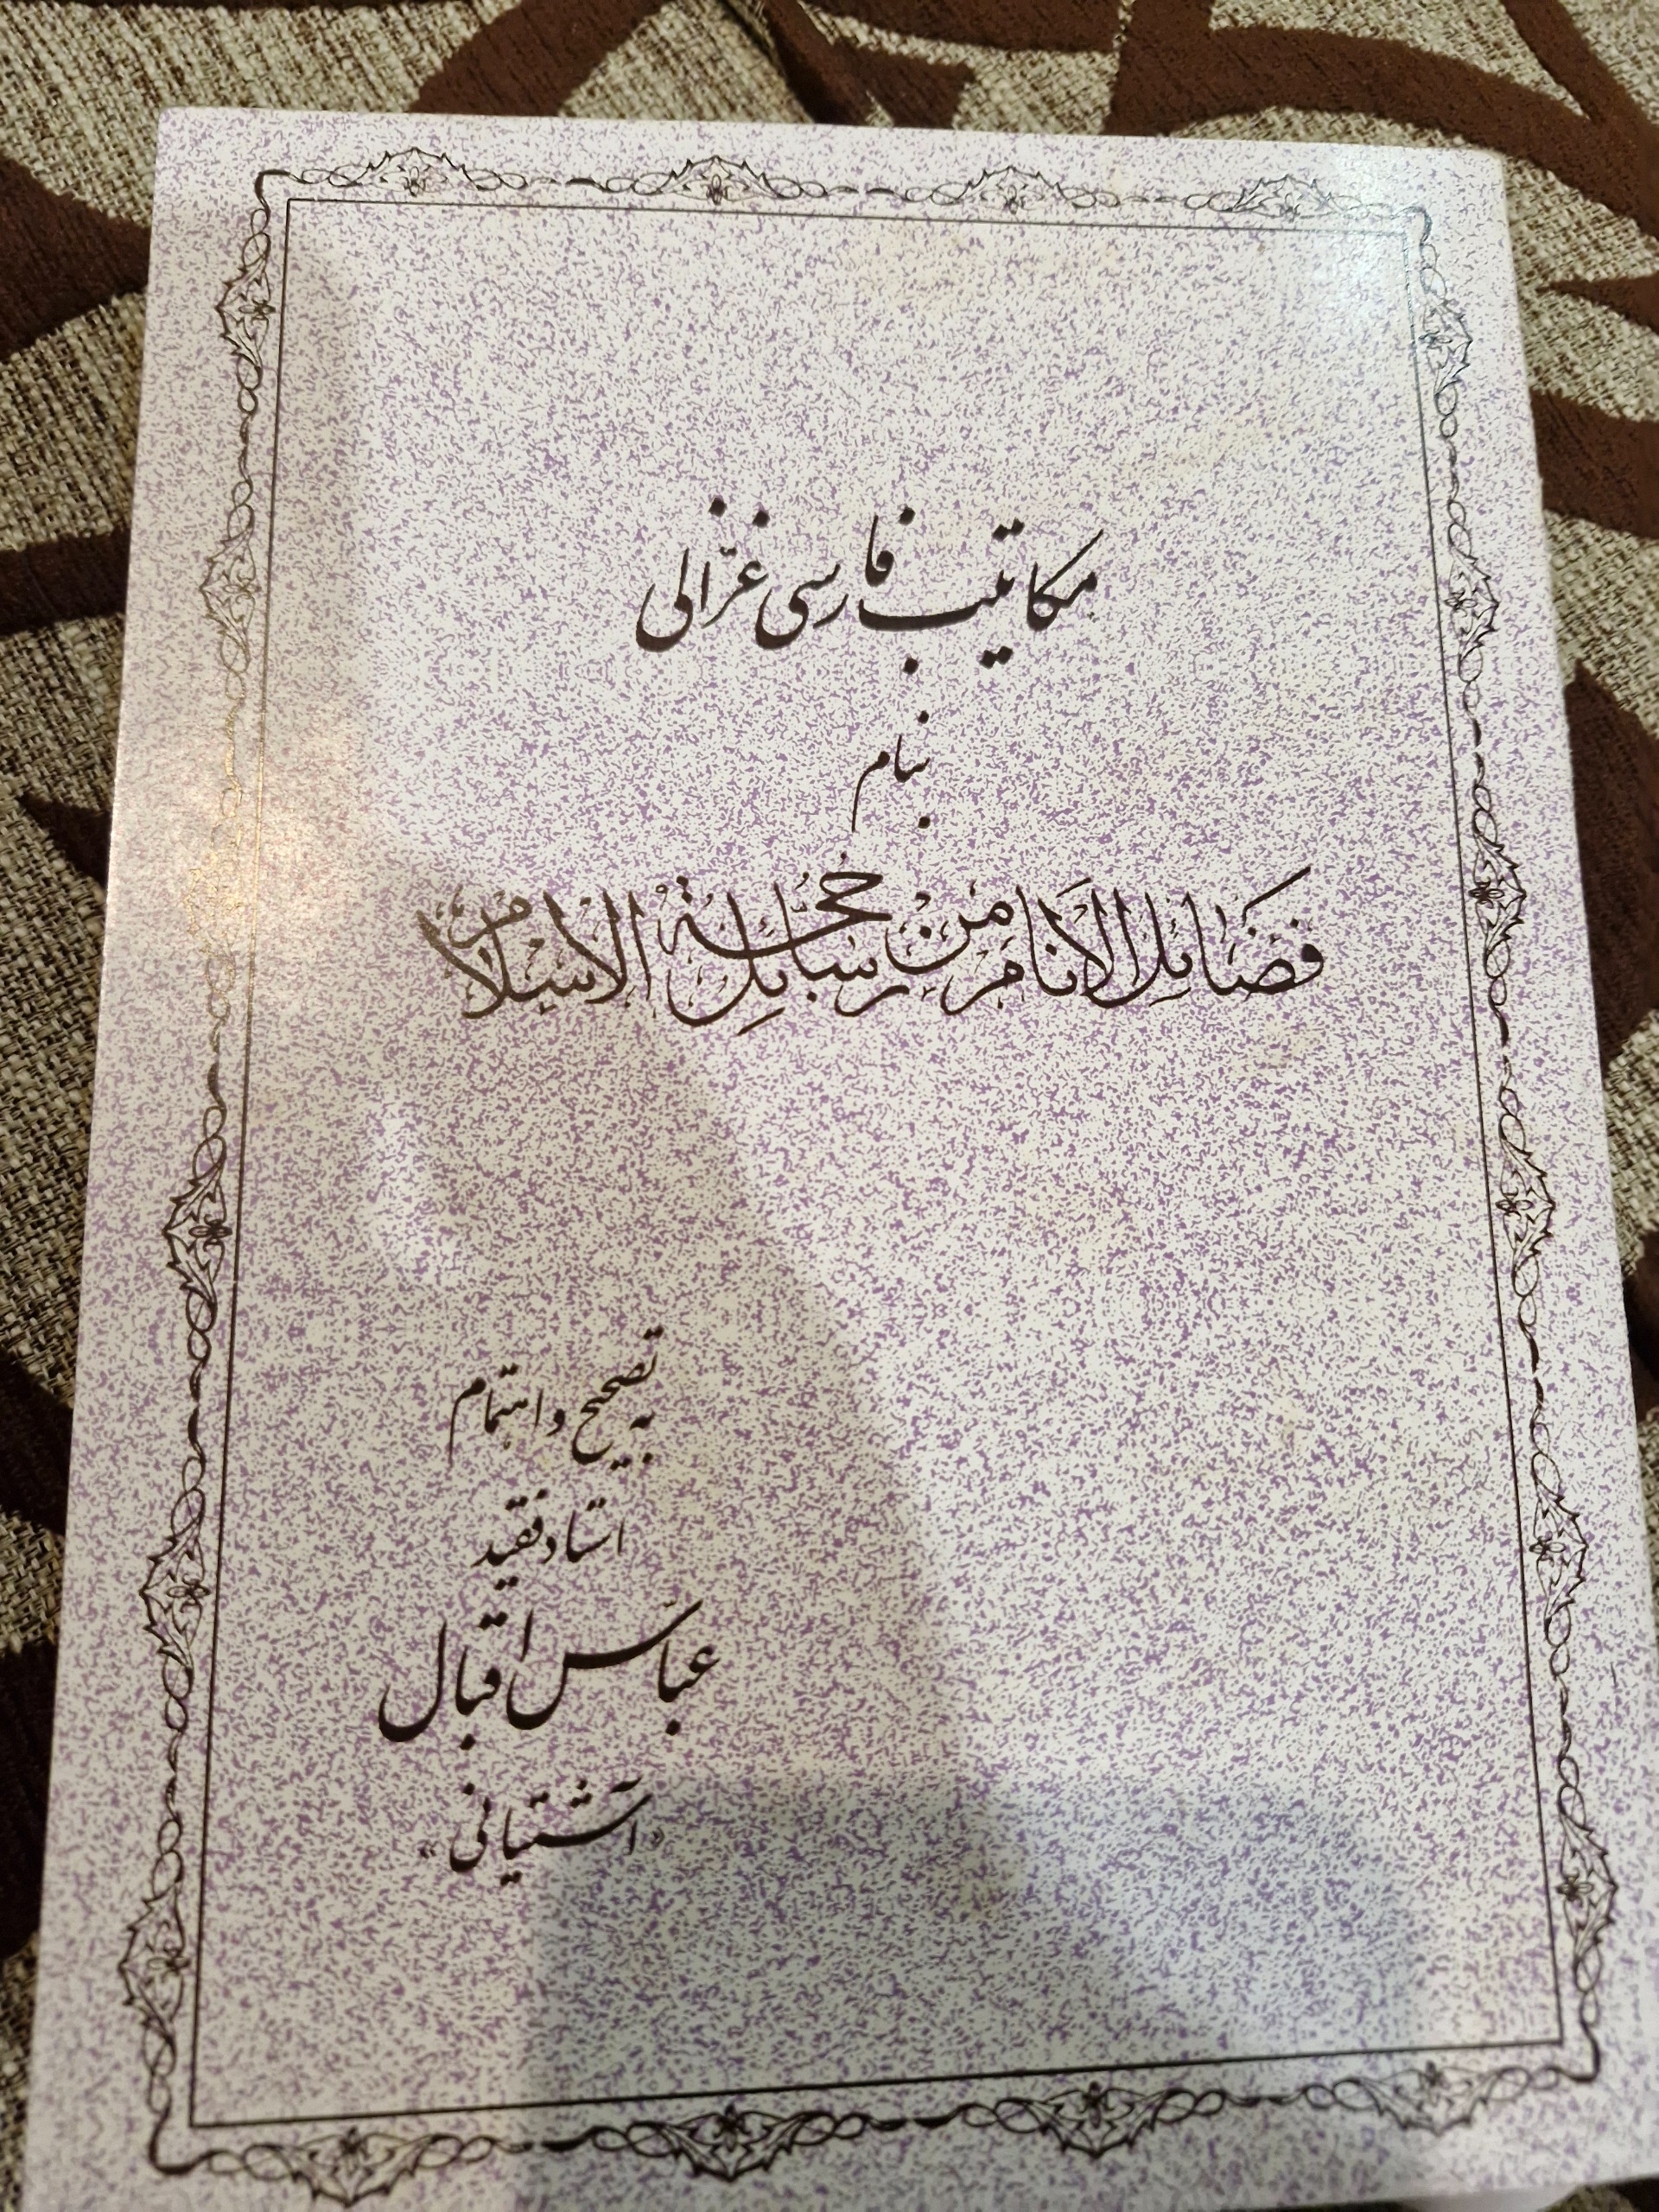 مکاتیب فارسی غزّالی
بنام
فضَائِل الأنَام مِن رسَائِل حُجّة الاسلام
به تصحیح و اهتمام
استاد فقید
عبّاس اقبال
«آشتیانی»